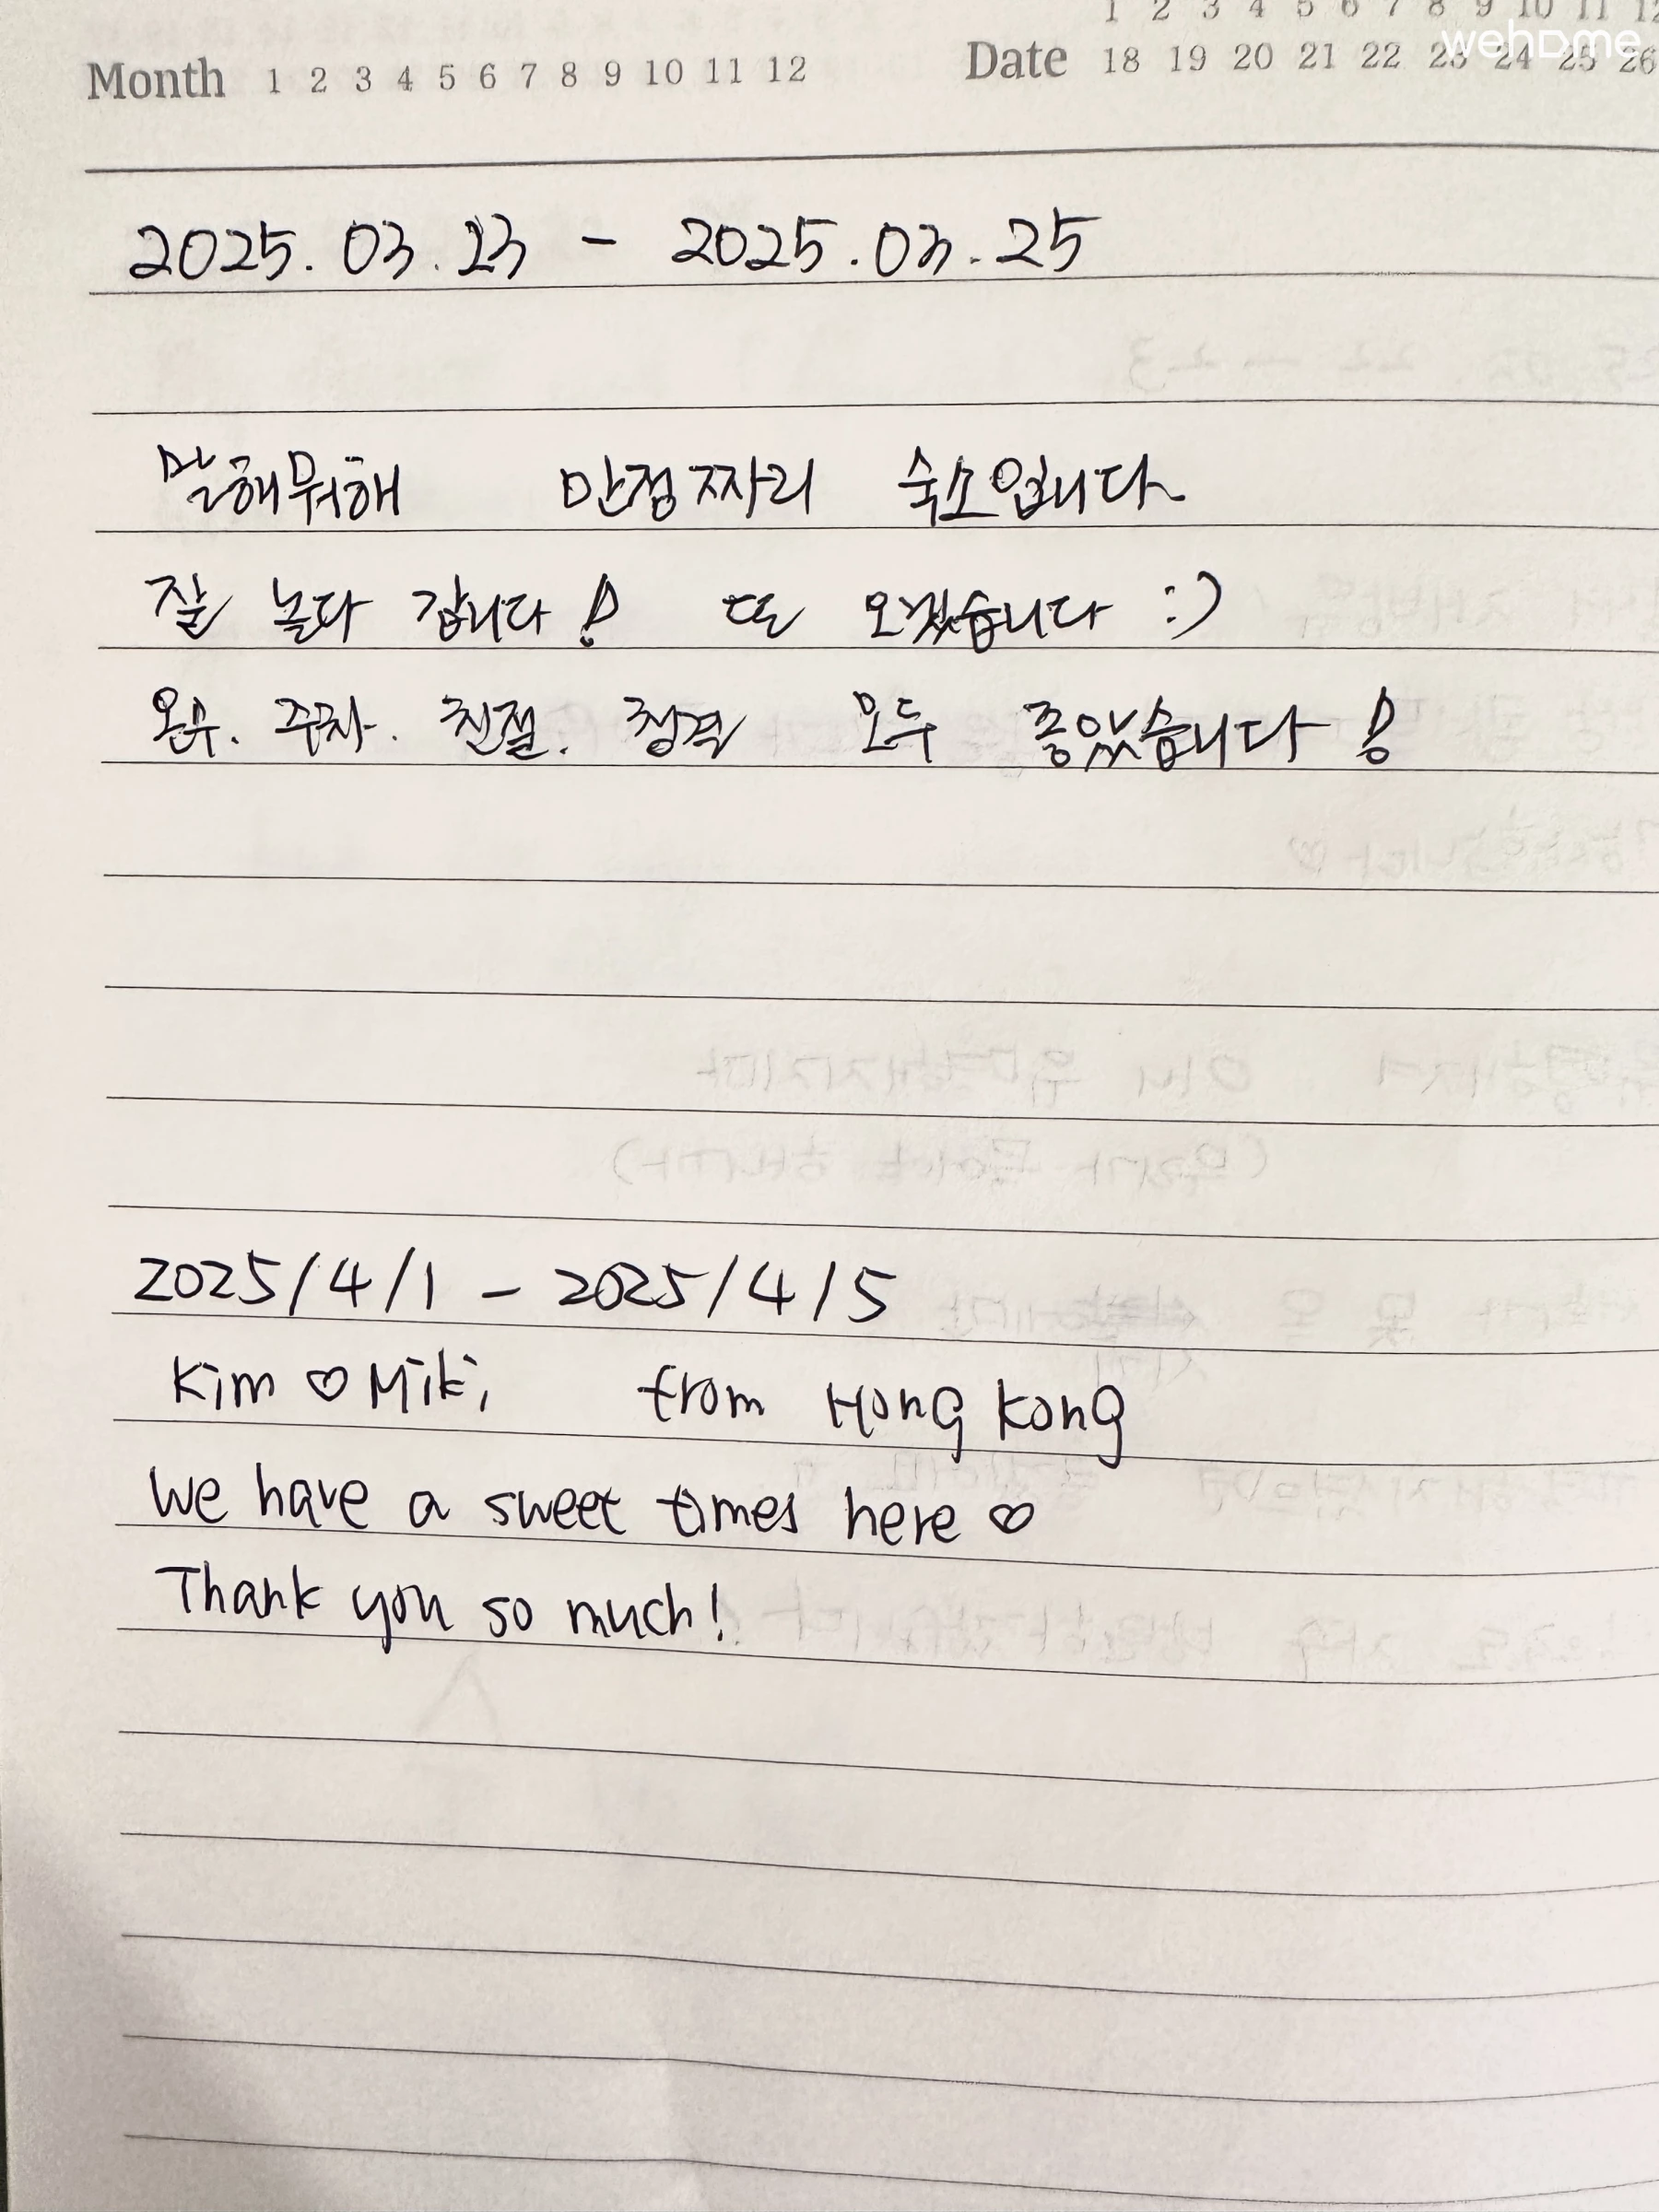 1 2 3 4 5 6 7 8 9 10 11 12
Month 1 2 3 4 5 6 7 8 9 10 11 12 Date 18 19 20 21 22 23 24 25 26
wehome
2025.03.23 - 2025.03.25
말해뭐해 만점짜리 숙소입니다
잘 놀다 갑니다! 또 오겠습니다 :)
온수. 주차. 친절. 청결 모두 좋았습니다!
2025/4/1 - 2025/4/5
Kim ♡ Miki from Hong Kong
We have a sweet times here ♡
Thank you so much!